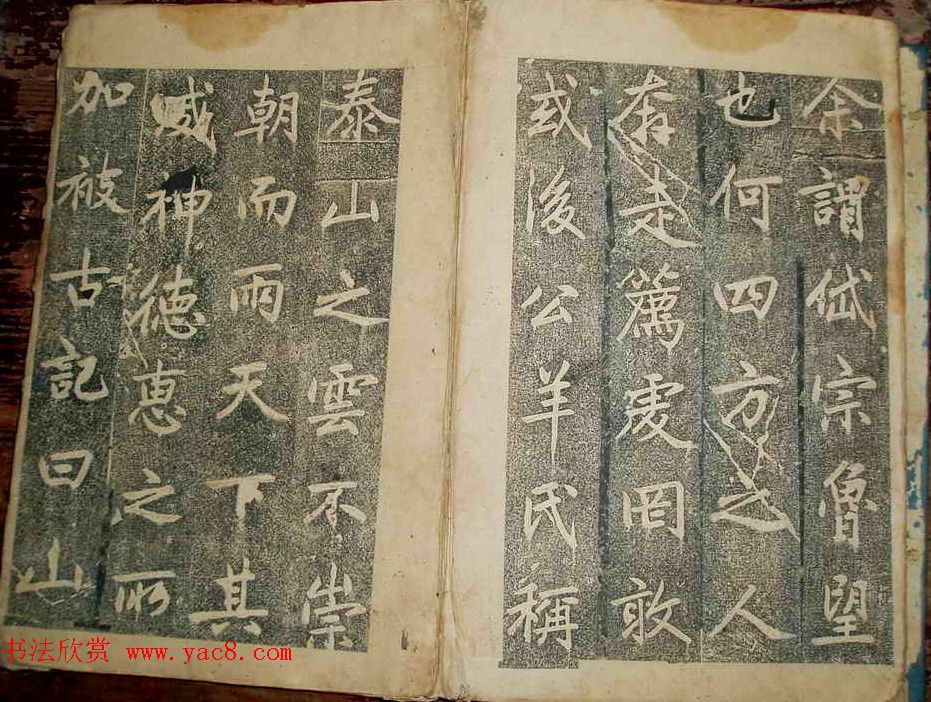 余謂岱宗魯望
也何四方之人
奔走篤虔罔敢
或後公羊氏稱
泰山之雲不崇
朝而雨天下其
威神德惠之所
加被古記曰山
书法欣赏 www.yac8.com